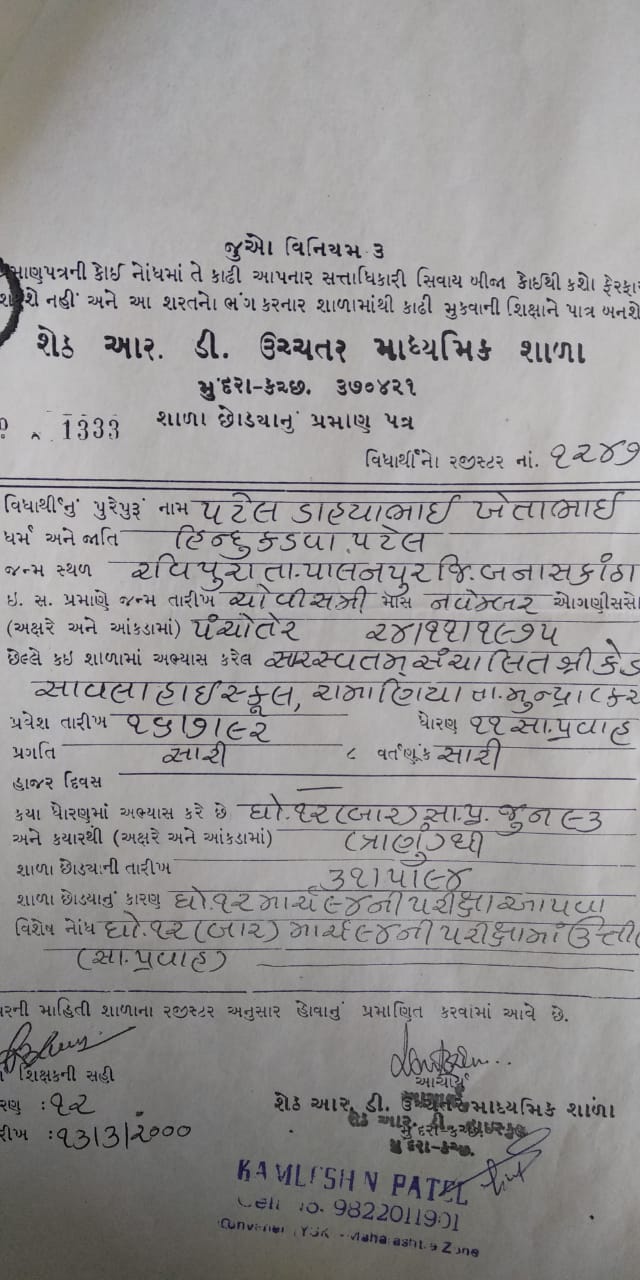 જુઓ વિનિયમ ૩
માણપત્રની કોઈ નોંધમાં તે કાઢી આપનાર સત્તાધિકારી સિવાય બીજા કોઈથી કશો ફેરફાર
શકાશે નહીં અને આ શરતનો ભંગ કરનાર શાળામાંથી કાઢી મુકવાની શિક્ષાને પાત્ર બનશે
શેઠ આર. ડી. ઉચ્ચતર માધ્યમિક શાળા
મુંદરા-કચ્છ. ૩૭૦૪૨૧
1333 શાળા છોડયાનું પ્રમાણ પત્ર
વિદ્યાર્થીનો રજીસ્ટર નાં. ૧૨૪૭
વિદ્યાર્થીનું પુરેપુરૂં નામ પટેલ ડાહયાભાઈ ખેતાભાઈ
ધર્મ અને જાતિ હિન્દુ કડવા પટેલ
જન્મ સ્થળ રવિપુરા તા.પાલનપુર જિ.બનાસકાંઠા
ઇ. સ. પ્રમાણે જન્મ તારીખ ચોવીસમી માસ નવેમ્બર ઓગણીસસો
(અક્ષરે અને આંકડામાં) પંચોતેર ૨૪/૧૧/૧૯૭૫
છેલ્લે કઇ શાળામાં અભ્યાસ કરેલ સારસ્વતમ્ સંચાલિત શ્રી કે.ડ
સાવલા હાઈસ્કૂલ, રામાણિયા તા.મુન્દ્રા (કચ્
પ્રવેશ તારીખ ૧૬/૭/૯૨ ધોરણ ૧૧ સા.પ્રવાહ
પ્રગતિ સારી વર્તણૂંક સારી
હાજર દિવસ —
કયા ધોરણમાં અભ્યાસ કરે છે ધો.૧૨ (બાર) સા.પ્ર. જુન ૯૩
અને કયારથી (અક્ષરે અને આંકડામાં) (ત્રાણું) થી
શાળા છોડયાની તારીખ ૩૧/૫/૯૪
શાળા છોડયાનું કારણ ધો.૧૨ માર્ચ ૯૪ની પરીક્ષા આપવા
વિશેષ નોંધ ધો.૧૨ (બાર) માર્ચ ૯૪ની પરીક્ષામાં ઉત્તી
(સા.પ્રવાહ)
પરની માહિતી શાળાના રજીસ્ટર અનુસાર હોવાનું પ્રમાણિત કરવામાં આવે છે.
શિક્ષકની સહી આચાર્ય
રણ : ૧૨ શેઠ આર. ડી. ઉચ્ચતર માધ્યમિક શાળા
રીખ : ૧૩/૩/૨૦૦૦ મુંદરા-કચ્છ
મુંદરા-કચ્છ.
KAMLESH N PATEL
Cell No. 9822011901
Convener, YSK - Maharashtra Zone